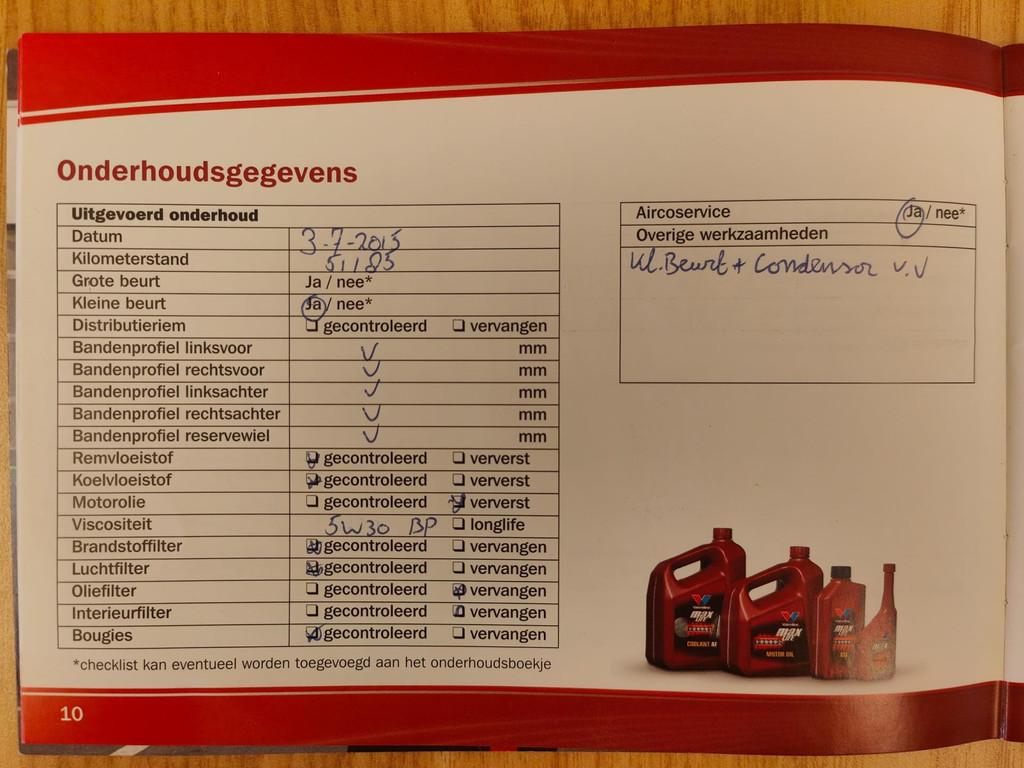 Onderhoudsgegevens
Uitgevoerd onderhoud
Datum 3-7-2015
Kilometerstand 51185
Grote beurt Ja / nee*
Kleine beurt Ja / nee*
Distributieriem ❑ gecontroleerd ❑ vervangen
Bandenprofiel linksvoor ✓ mm
Bandenprofiel rechtsvoor ✓ mm
Bandenprofiel linksachter ✓ mm
Bandenprofiel rechtsachter ✓ mm
Bandenprofiel reservewiel ✓ mm
Remvloeistof ☑ gecontroleerd ❑ ververst
Koelvloeistof ☑ gecontroleerd ❑ ververst
Motorolie ❑ gecontroleerd ☑ ververst
Viscositeit 5W30 BP ❑ longlife
Brandstoffilter ☑ gecontroleerd ❑ vervangen
Luchtfilter ☑ gecontroleerd ❑ vervangen
Oliefilter ❑ gecontroleerd ☑ vervangen
Interieurfilter ❑ gecontroleerd ❑ vervangen
Bougies ☑ gecontroleerd ❑ vervangen
*checklist kan eventueel worden toegevoegd aan het onderhoudsboekje
10
Aircoservice Ja / nee*
Overige werkzaamheden
Kl. Beurt + Condensor v.v
Valvoline
MAX LIFE
COOLANT AF
Valvoline
MAX LIFE
MOTOR OIL